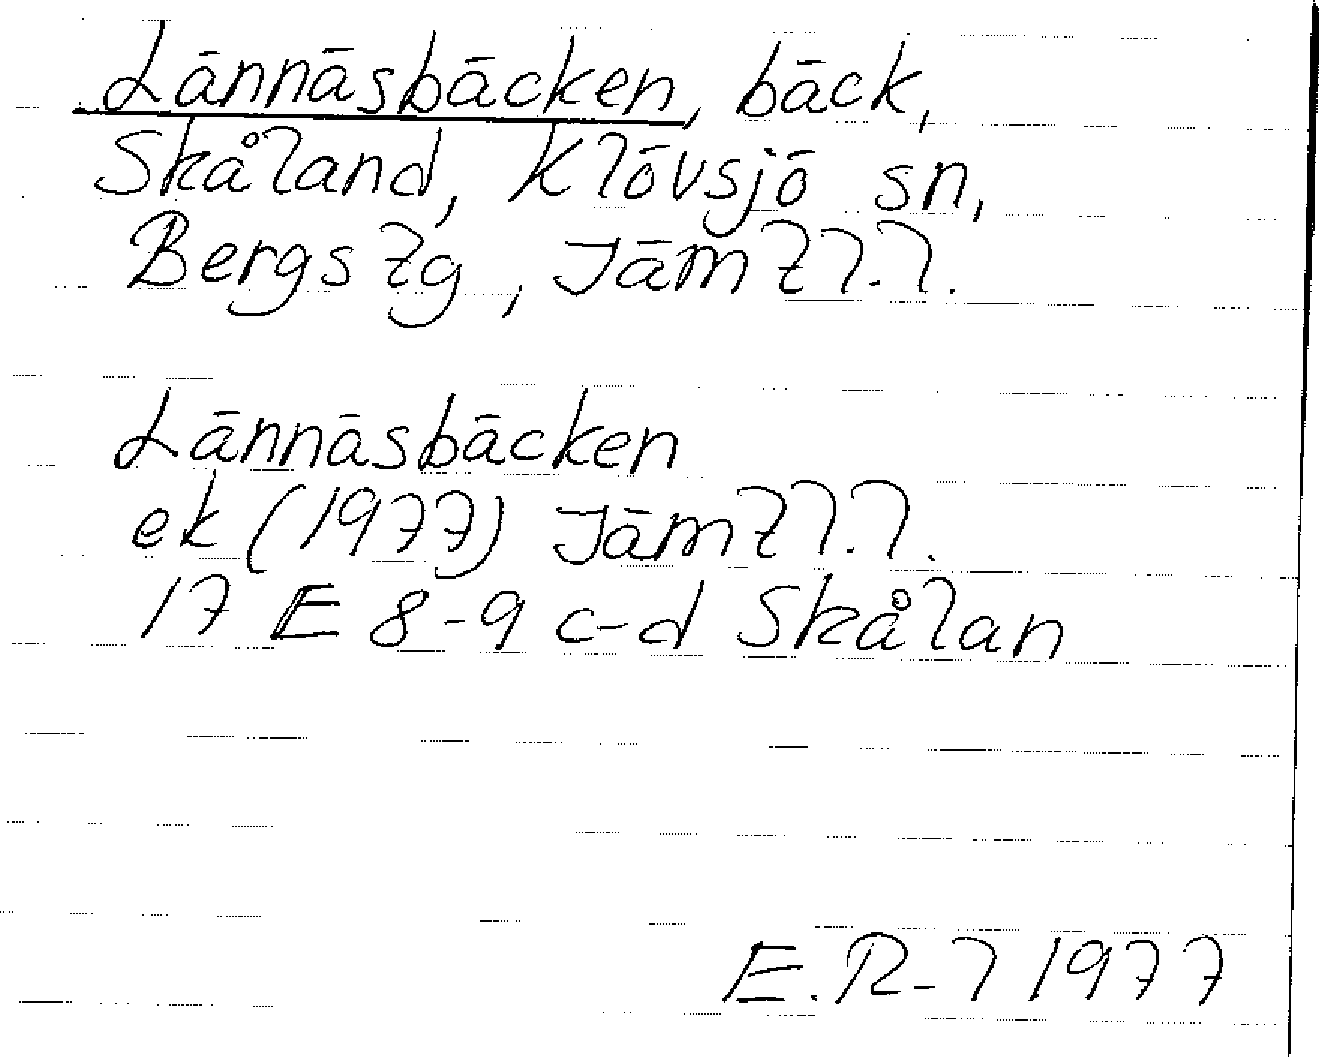 Lännäsbäcken, bäck,
Skåland, Klövsjö sn,
Bergs tg, Jämtl.l.
Lännäsbäcken
ek (1977) Jämtl.l.
17 E 8-9 c-d Skålan
E.R-l 1977